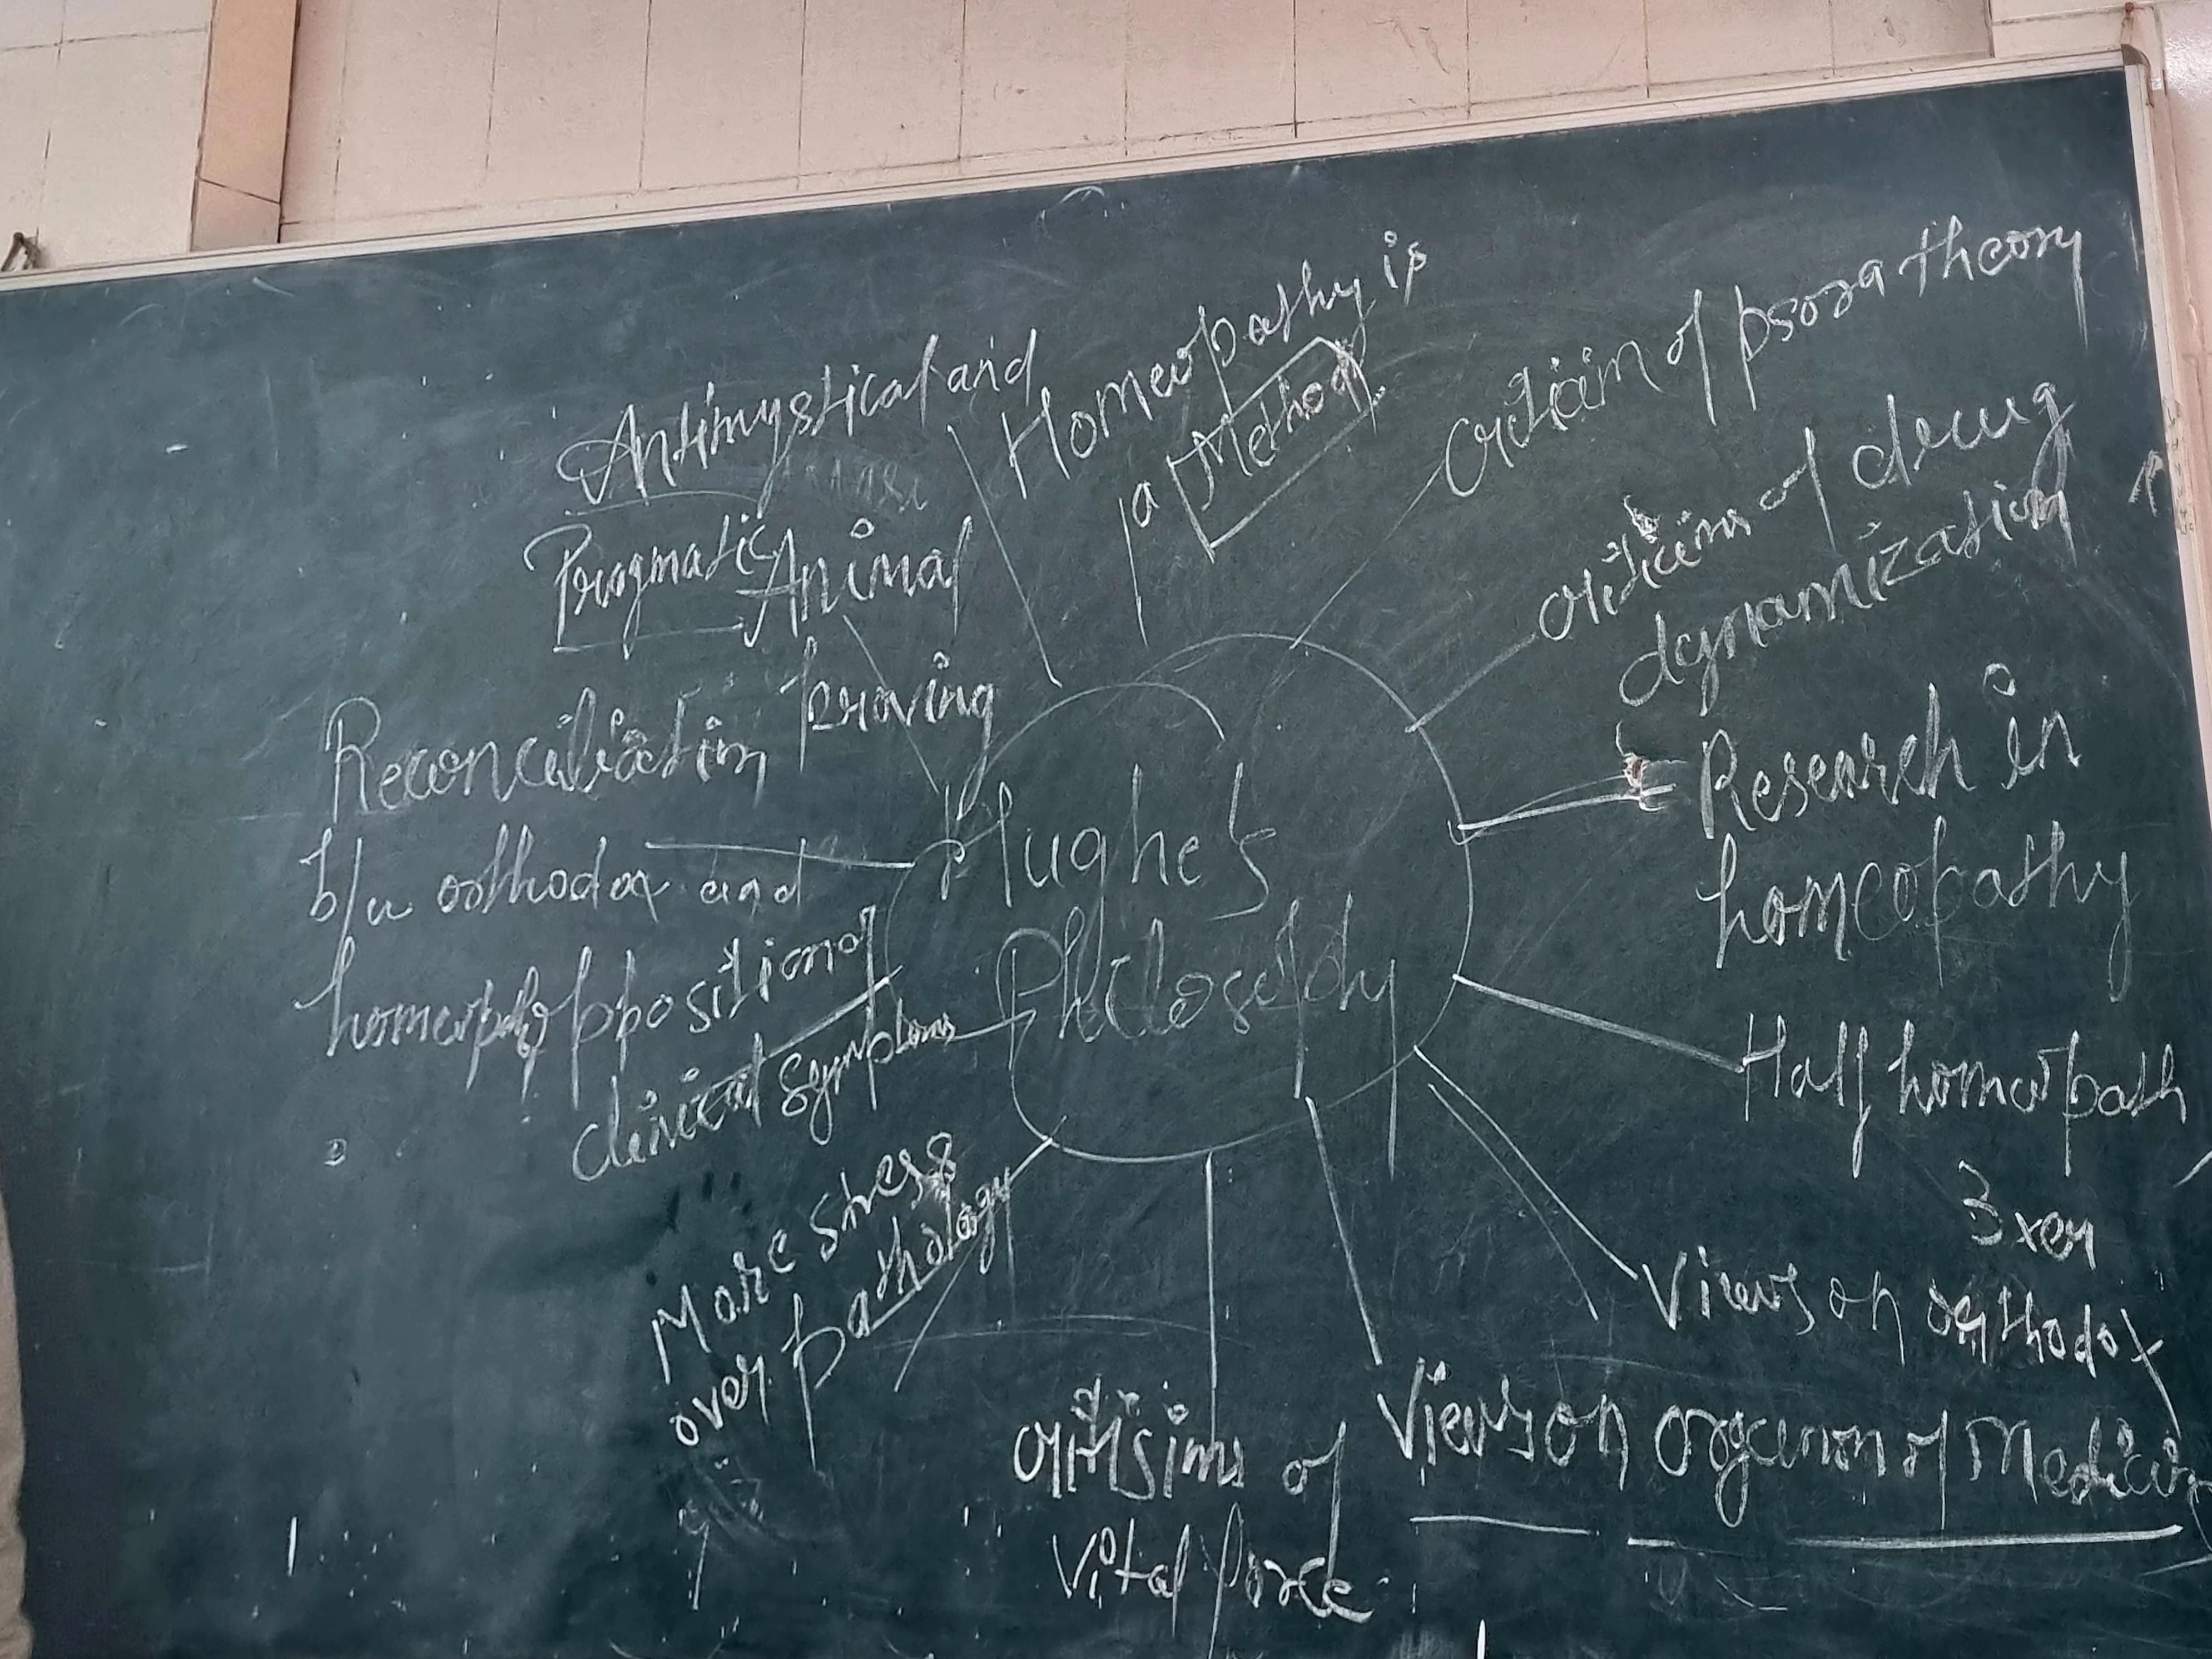 Antimystical and
Pragmatic
Homeopathy is
a Method
Critisim of psora theory
Criticims of drug
dynamization
Animal
proving
Research in
homeopathy
Reconciliation
b/w orthodox and
Hughe's
Philosophy
Half homeopath
Opposition of
Clinical Symptoms
Views on orthodox
More stress
over pathology
Views on Organon of Medicin
critisims of
Vital force